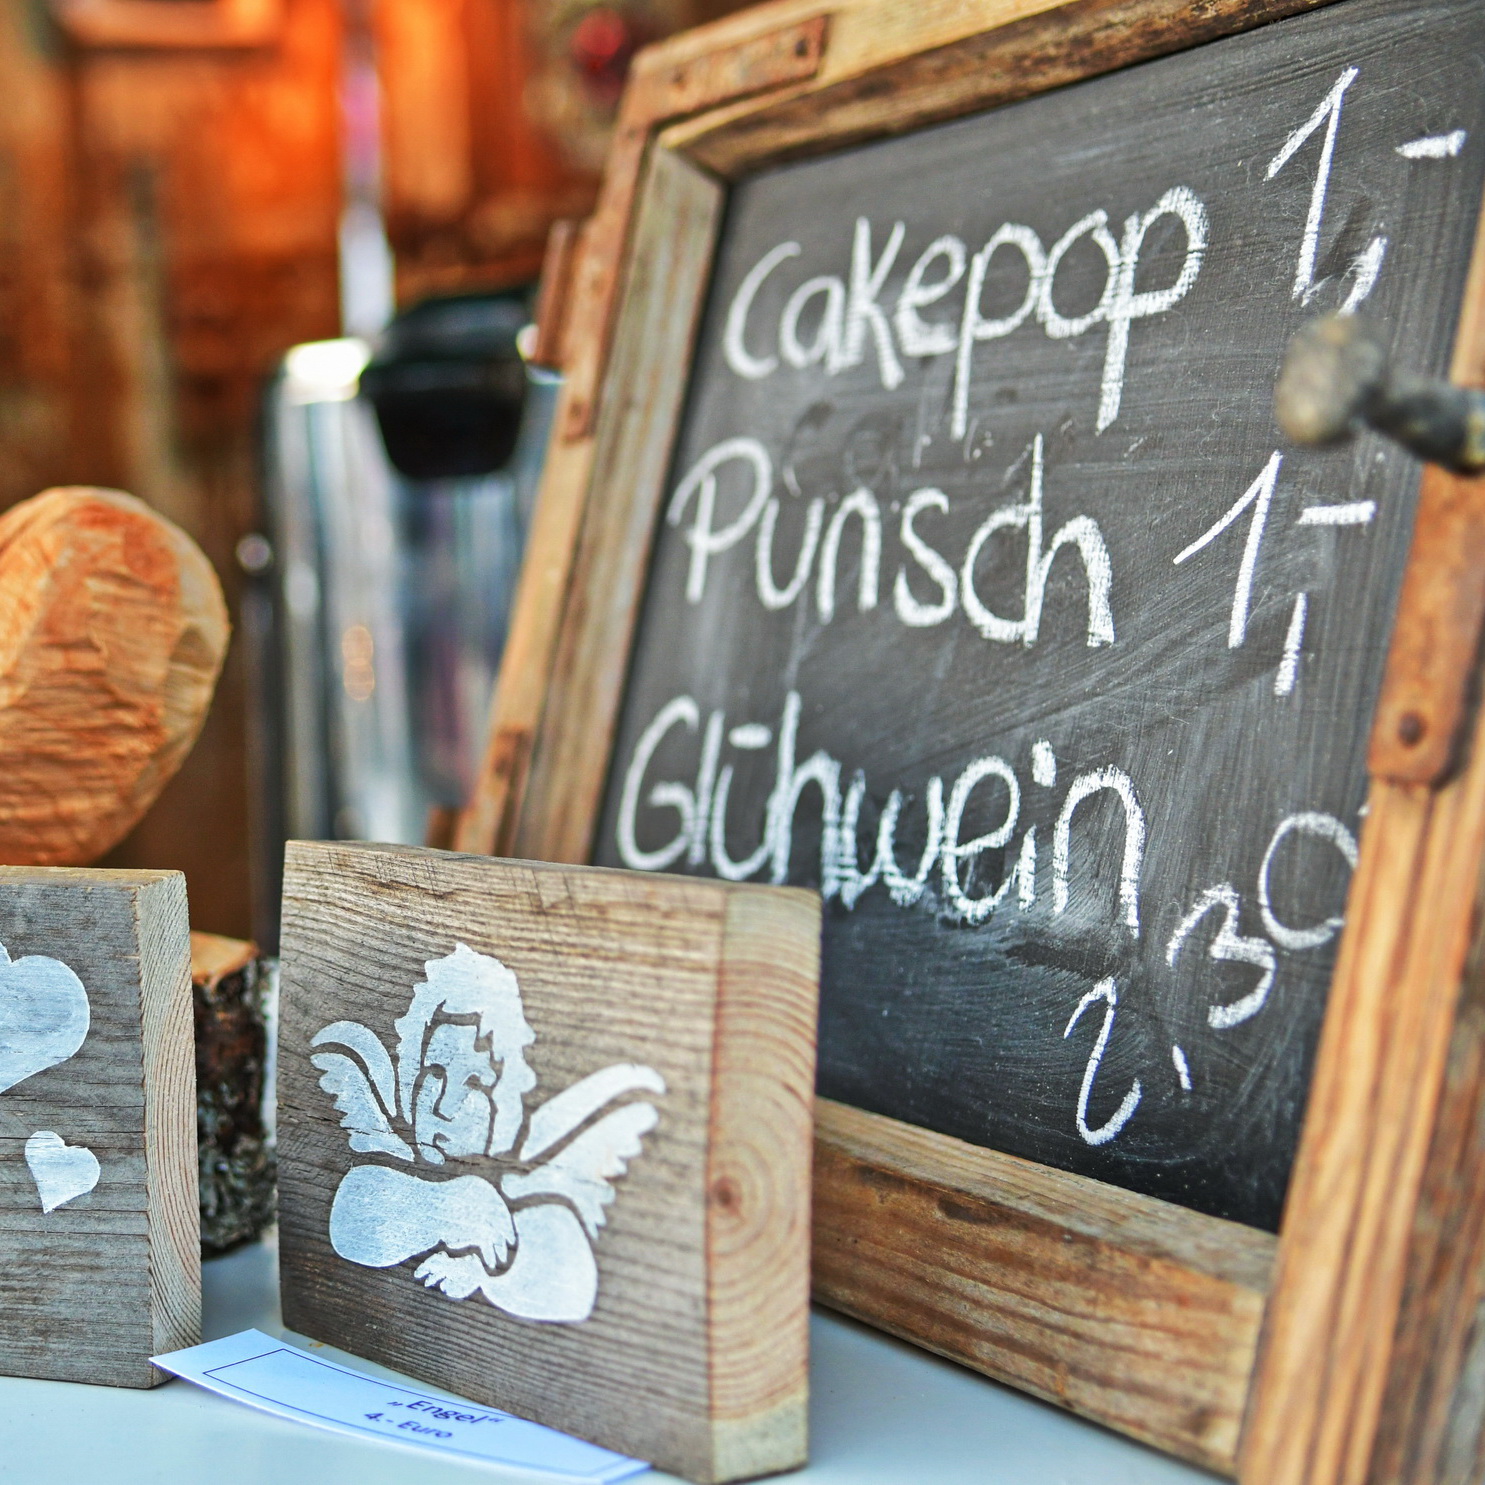 Cakepop 1,-
Punsch 1,-
Glühwein 2,30
„Engel“
4.- Euro